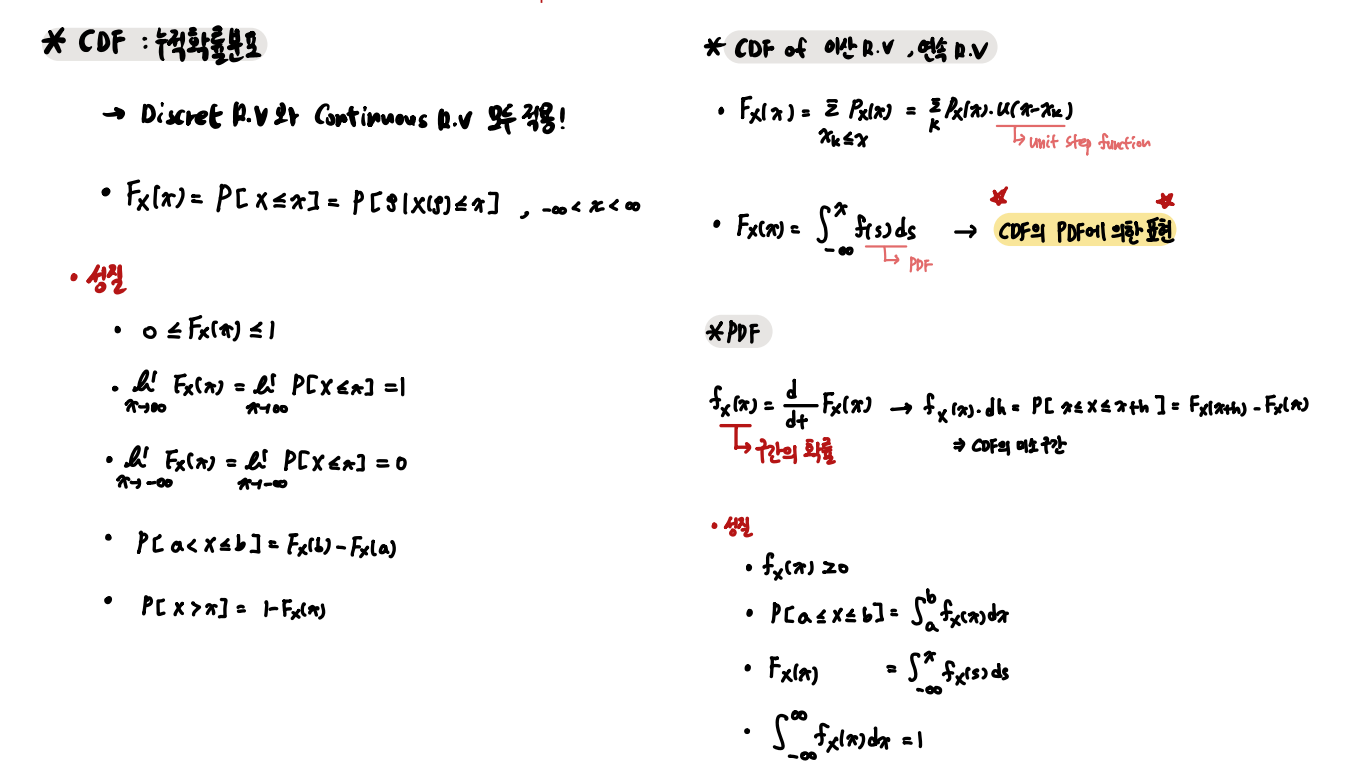 * CDF : 누적확률분포
→ Discret R.V와 Continuous R.V 모두 적용!
• Fx(x) = P[X≤x] = P[ζ|X(ζ)≤x] , -∞<x<∞
• 성질
• 0 ≤ Fx(x) ≤ 1
• lim x→∞ Fx(x) = lim x→∞ P[X≤x] = 1
• lim x→-∞ Fx(x) = lim x→-∞ P[X≤x] = 0
• P[a<X≤b] = Fx(b) - Fx(a)
• P[X>x] = 1-Fx(x)
* CDF of 이산 R.V , 연속 R.V
• Fx(x) = Σ Px(x) = Σ Px(x)·u(x-xk)
xk≤x k
↳ unit step function
• Fx(x) = ∫-∞^x f(s)ds → CDF의 PDF에 의한 표현
↳ PDF
*PDF
fx(x) = d/dt Fx(x) → fx(x)·dh = P[x≤X≤x+h] = Fx(x+h) - Fx(x)
↳ 구간의 확률
⇒ CDF의 미소구간
• 성질
• fx(x) ≥0
• P[a≤X≤b] = ∫a^b fx(x)dx
• Fx(x) = ∫-∞^x fx(s)ds
• ∫-∞^∞ fx(x)dx = 1